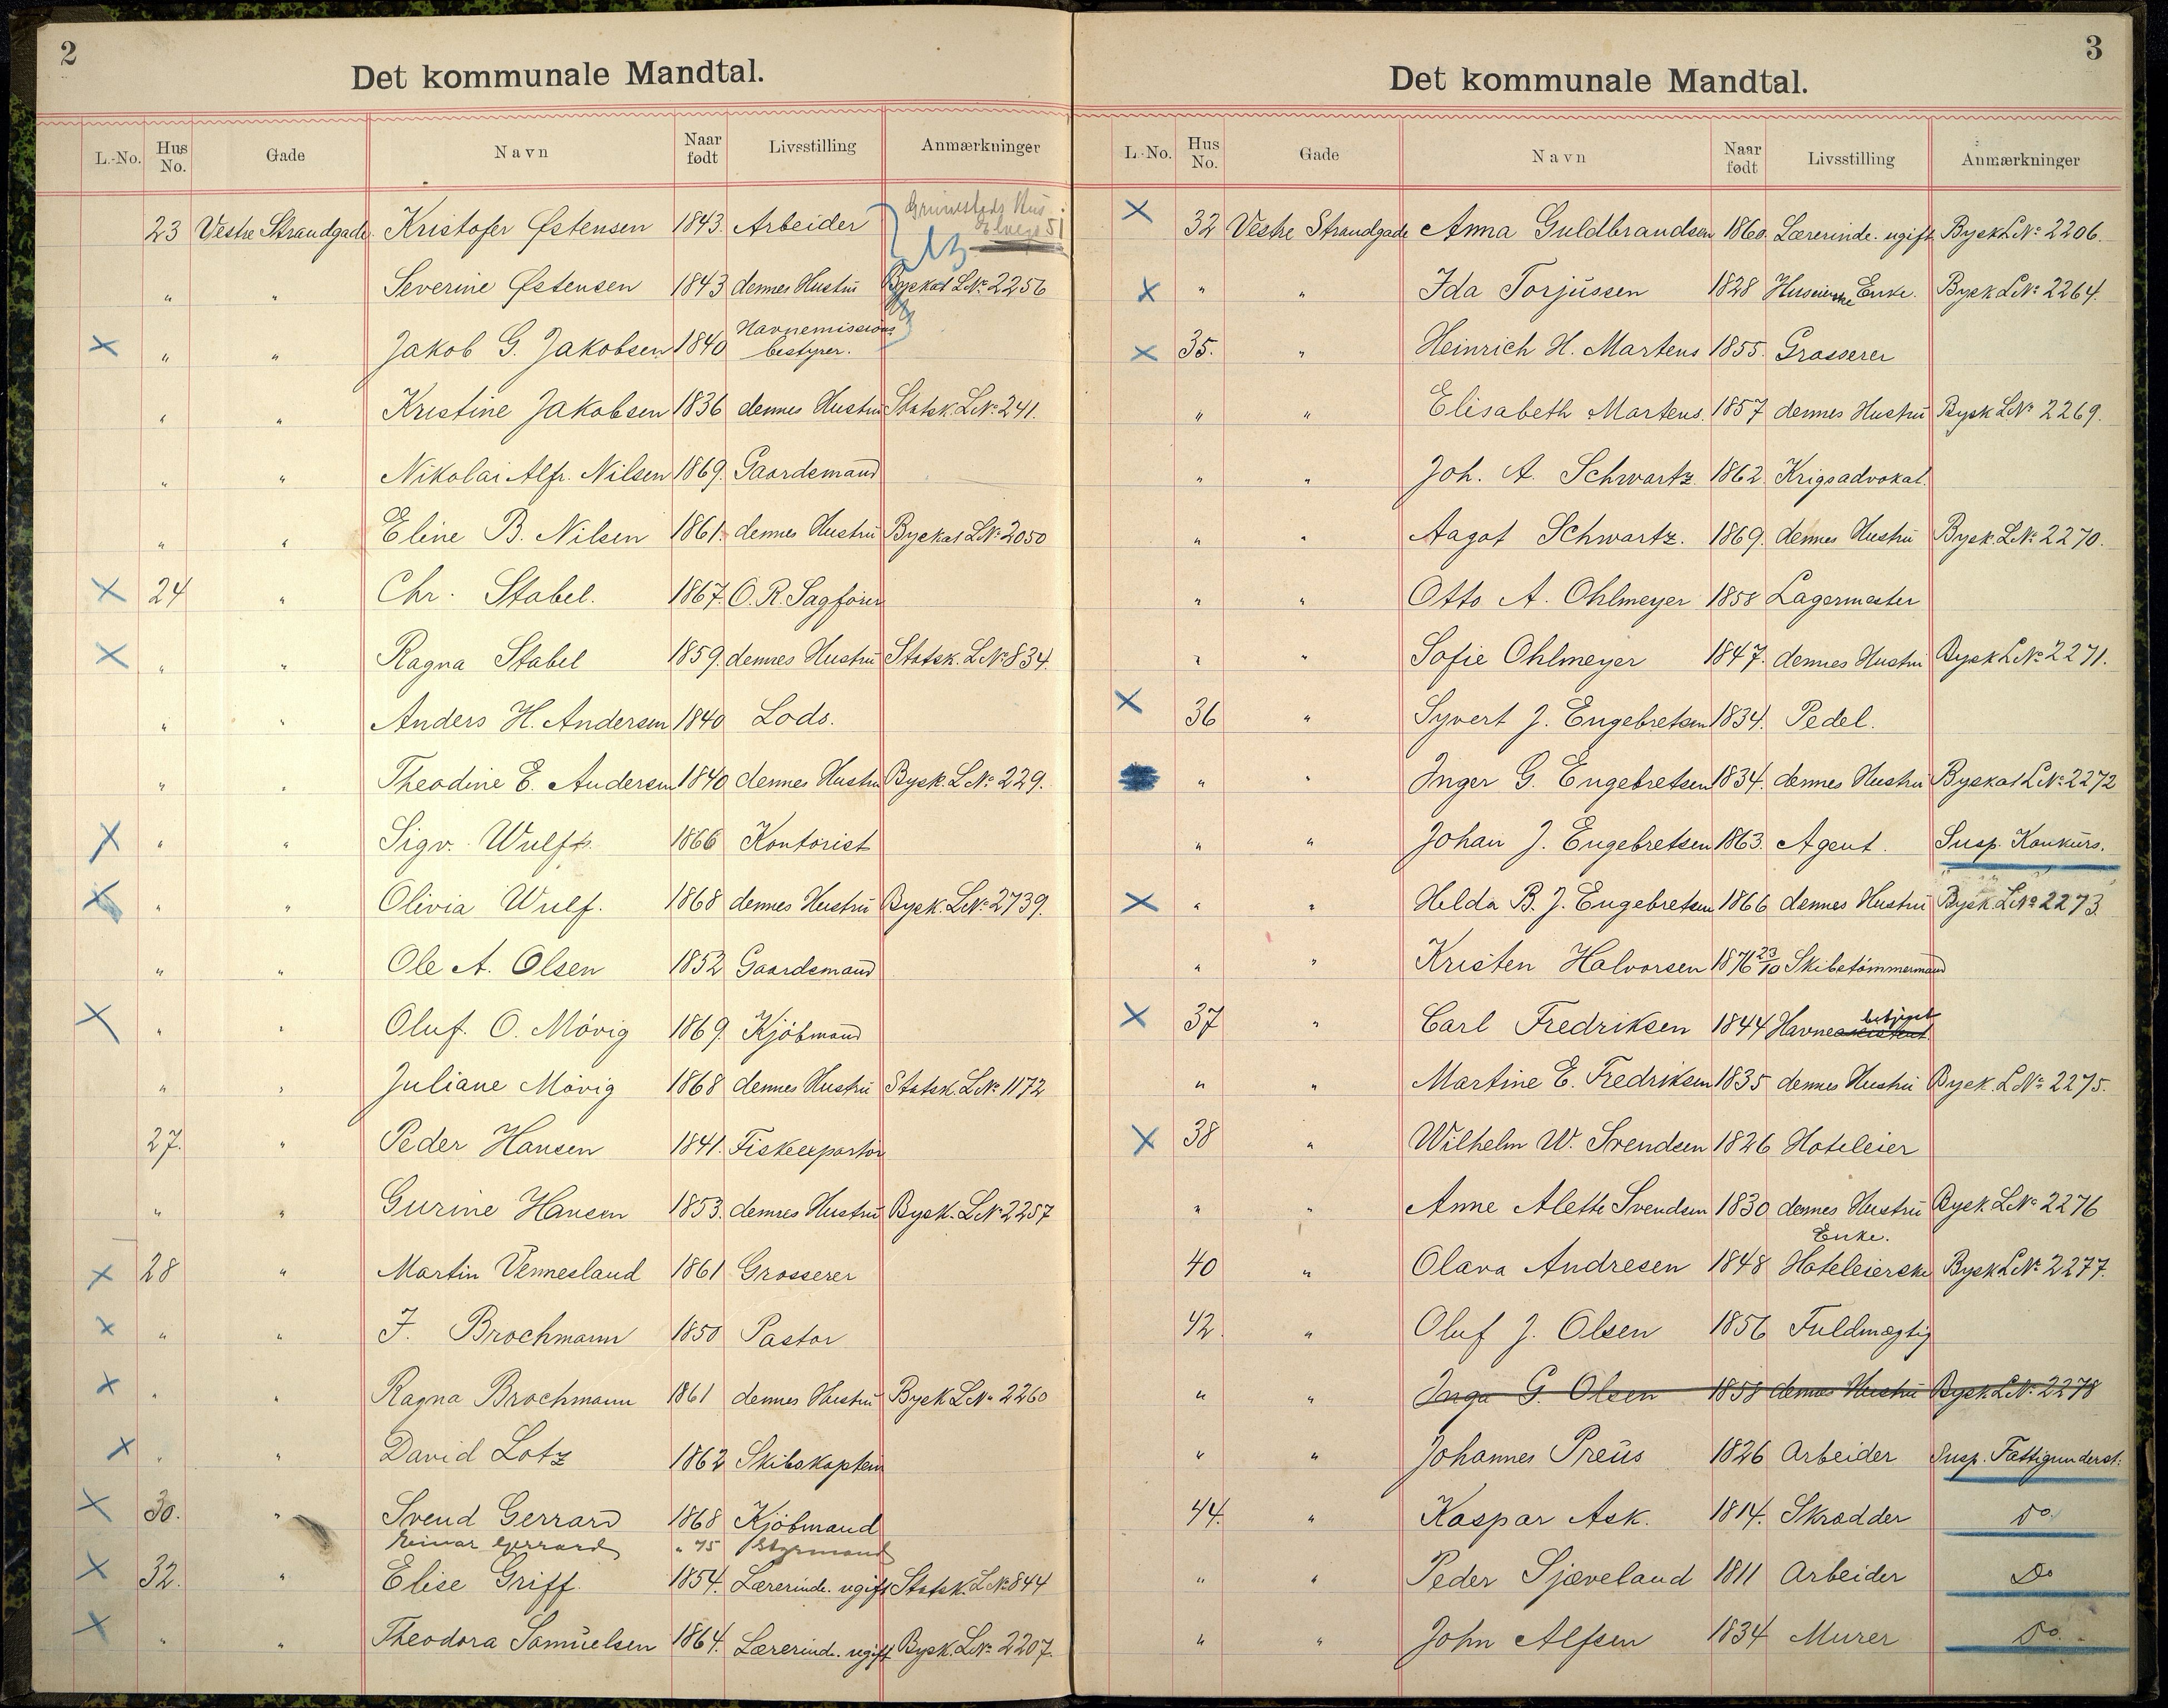 2
Det kommunale Mandtal.
L.-No. Hus No. Gade Navn Naar født Livsstilling Anmærkninger
Grimsteds Hus
Elvegd 51
23 Vestre Strandgade Kristofer Østensen 1843. Arbeider
" " Severine Østensen 1843 dennes Hustru Byskat LNo. 2256
X " " Jakob G. Jakobsen 1840 Havnemissions bestyrer.
" " Kristine Jakobsen 1836 dennes Hustru Statsk. LNo. 241.
" " Nikolai Alfr. Nilsen 1869. Gaardsmand
" " Eline B. Nilsen 1861. dennes Hustru Byskat LNo. 2050
X 24 " Chr. Stabel. 1867. O.R. Sagfører
X " " Ragna Stabel 1859. dennes Hustru Statsk. LNo. 834.
" " Anders H. Andersen 1840 Lods.
" " Theodine E. Andersen 1840 dennes Hustru Bysk. LNo. 229.
X " " Sigv. Wulff. 1866 Kontorist
X " " Olivia Wulf. 1868 dennes Hustru Bysk. LNo. 2739.
" " Ole A. Olsen 1852 Gaardsmand
X " " Oluf. O. Mövig 1869. Kjöbmand
" " Juliane Mövig 1868 dennes Hustru Statsk. LNo. 1172
27. " Peder Hansen 1841. Fiskeexportør
" " Gurine Hansen 1853. dennes Hustru Bysk. LNo. 2257
X 28 " Martin Vennesland 1861 Grosserer
X " " J. Brochmann 1850 Pastor
X " " Ragna Brochmann 1861 dennes Hustru Bysk LNo. 2260
X " " David Lotz 1862 Skibskaptein
X 30. " Svend Gerrard 1868 Kjöbmand
Einar Gerrard " 75 Styrmand
X 32. " Elise Griff. 1854. Lærerinde. ugift Statsk. LNo. 844
X " " Theodora Samuelsen 1864. Lærerinde. ugift Bysk. LNo. 2207.
3
Det kommunale Mandtal.
L.-No. Hus No. Gade Navn Naar født Livsstilling Anmærkninger
X 32 Vestre Strandgade Anna Guldbrandsen 1860. Lærerinde. ugift Bysk LNo. 2206.
X " " Ida Torjussen 1828 Huseierske Enke. Bysk LNo. 2264.
X 35. " Heinrich H. Martens 1855. Grosserer
" " Elisabeth Martens. 1857 dennes Hustru Bysk LNo. 2269.
" " Joh. A. Schwartz. 1862. Krigsadvokat.
" " Aagot Schwartz. 1869. dennes Hustru Bysk. LNo. 2270.
" " Otto A. Ohlmeyer 1858 Lagermester
" " Sofie Ohlmeyer 1847. dennes Hustru Bysk LNo. 2271.
X 36 " Syvert J. Engebretsen 1834. Pedel.
" " Inger G. Engebretsen 1834. dennes Hustru Byskat LNo. 2272
" " Johan J. Engebretsen 1863. Agent. Susp. Konkurs.
X " " Helda B. J. Engebretsen 1866 dennes Hustru Bysk. LNo. 2273
" " Kristen Halvorsen 1876 23/10 Skibstömmermand
X 37 " Carl Fredriksen 1844 Havneassistent betjent
" " Martine E. Fredriksen 1835 dennes Hustru Bysk. LNo. 2275.
X 38 " Wilhelm W. Svendsen 1826 Hoteleier
" " Anne Alette Svendsen 1830 dennes Hustru Bysk LNo. 2276
Enke.
40 " Olava Andresen 1848 Hoteleierske Bysk LNo. 2277.
42. " Oluf J. Olsen 1856 Fuldmægtig
" " Inga G. Olsen 1858 dennes Hustru Bysk LNo. 2278
" " Johannes Preus 1826 Arbeider Susp. Fattigunderst.
44. " Kaspar Ask. 1814. Skrædder Do
" " Peder Sjæveland 1811 Arbeider Do
" " John Alfsen 1834 Murer Do.